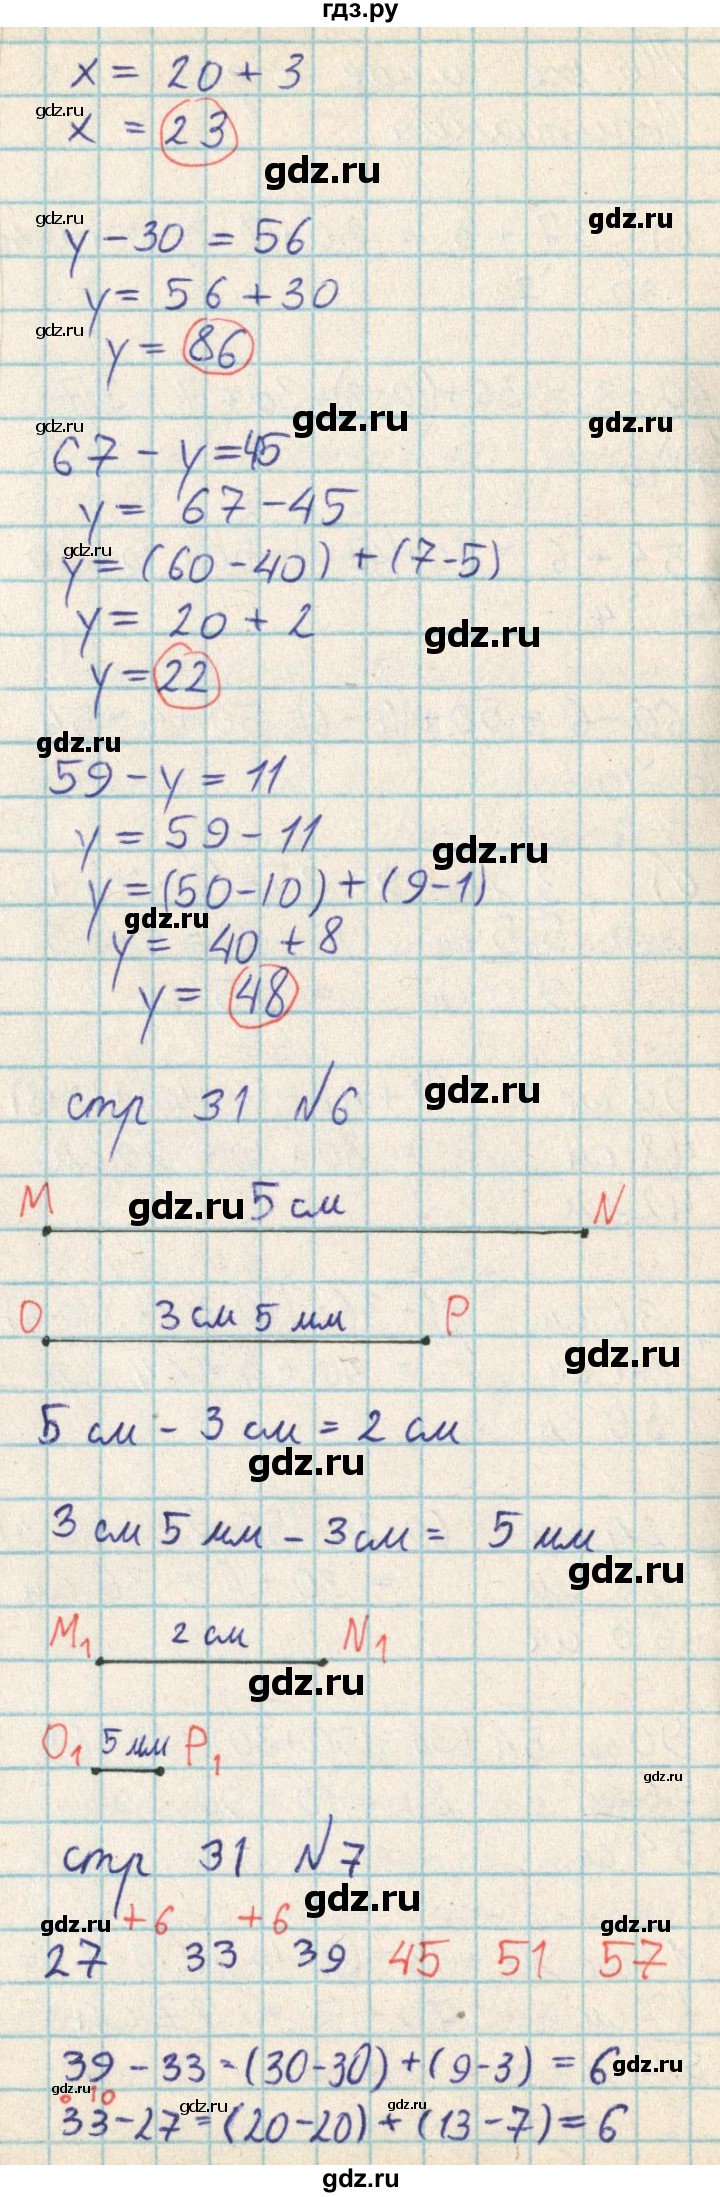 гдз.ру
x = 20 + 3
gdz.ru
x = 23
gdz.ru
gdz.ru
gdz.ru
y - 30 = 56
y = 56 + 30
gdz.ru
y = 86
gdz.ru
gdz.ru
gdz.ru
67 - y = 45
y = 67 - 45
gdz.ru
y = (60 - 40) + (7 - 5)
y = 20 + 2
gdz.ru
y = 22
gdz.ru
59 - y = 11
y = 59 - 11
gdz.ru
y = (50 - 10) + (9 - 1)
gdz.ru
y = 40 + 8
y = 48
gdz.ru
стр 31 №6
M gdz.ru 5 см N
O 3 см 5 мм P
gdz.ru
5 см - 3 см = 2 см
gdz.ru
3 см 5 мм - 3 см = 5 мм
gdz.ru
M1 2 см N1
gdz.ru
O1 5 мм P1
gdz.ru
стр 31 №7
gdz.ru
gdz.ru +6 +6 gdz.ru
27 33 39 45 51 57
39 - 33 = (30 - 30) + (9 - 3) = 6
gdz.ru
gdz.ru 10 gdz.ru gdz.ru
33 - 27 = (20 - 20) + (13 - 7) = 6
gdz.ru